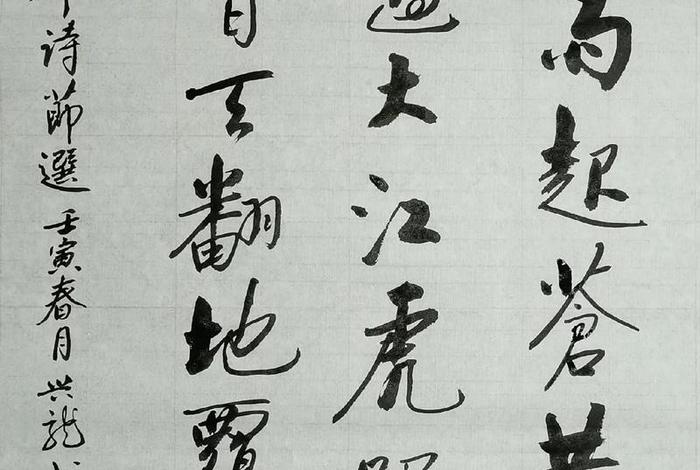 雨起蒼黃
過大江虎踞
昔天翻地覆
詩節選壬寅春月興龍